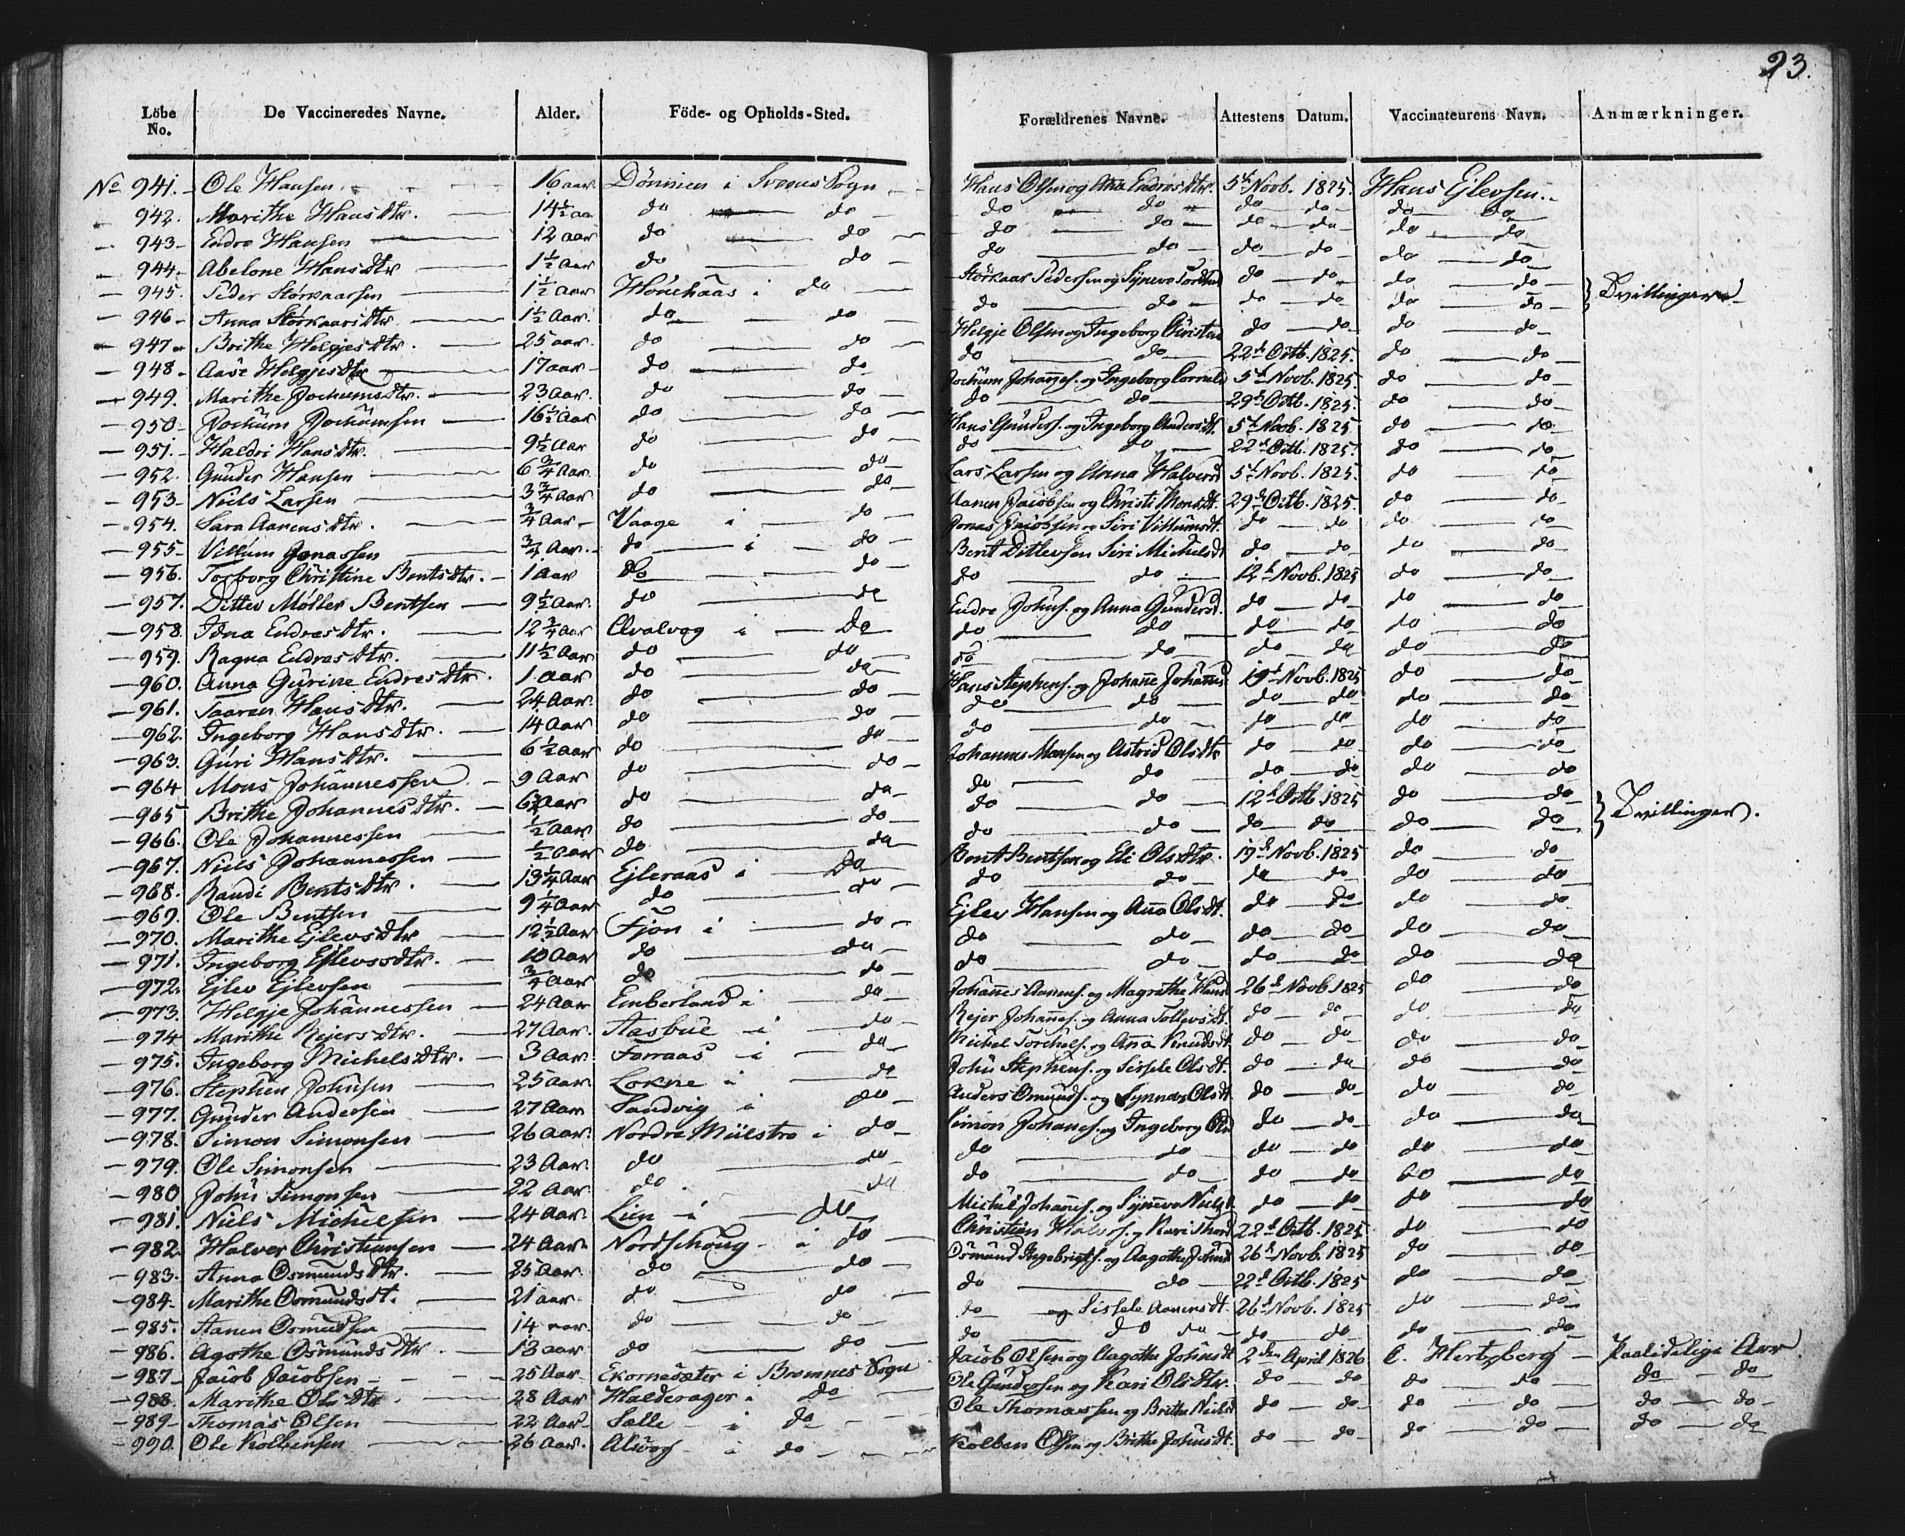 93.
Löbe No. De Vaccineredes Navne. Alder. Föde- og Opholds-Sted. Forældrenes Navne. Attestens Datum. Vaccinateurens Navn. Anmærkninger.
No 941. Ole Hansen 16 aar Dönnien i Sveens Sogn Hans Olsen og Ana Endresdtr. 5t Novb. 1825. Hans Ejlevsen
942. Marithe Hansdtr. 14½ aar do do do do do do do do
943. Endre Hansen 12 Aar do do do do do do do do
944. Abelone Hansdtr 1½ Aar do do do do do do do do
945. Peder Størkaarsen 1½ Aar i do Størkaar Pedersen og Synneve do do do do } Tvillinger
946 Anna Størkaarsdtr. 1½ Aar. do do do do do do do do
947 Brithe Helgjesdtr. 25 aar. do do Helgje Olsen og Ingeborg do do do do
948 Aase Helgjesdtr 17 aar do do do do 22d Octb. 1825. do do
949. Marithe Jochumsdtr. 23 Aar do do Jochum Johannes. og Ingeborg 5t Novb. 1825 do do
950 Jochum Jochumsen 16½ Aar do do do do 29d Octb. 1825. do do
951. Haldri Hansdtr. 9½ Aar do do Hans Gunders. og Ingeborg Andersdt. 5t Novb. 1825 do do
952. Gunder Hansen 6¾ Aar. do do do do 22d Octb. 1825. do do
953 Niels Larsen 3¾ Aar. do do Lars Larsen og Anna Halversd 5t Novb. 1825. do do
954. Sara Aanensdtr. ¾ Aar Vaage i do Aanen Jacobsen og Christi Monsdt. 29d Octb. 1825. do do
955 Villum Jonassen ¾ Aar. do i do Jonas Jacobsen og Siri Villumsdt. do do do do
956. Torborg Christine Bentsdtr. 1 Aar do do Bent Ditlevsen Siri Michelsdt do do do do
957. Ditlev Møller Bentsen 9½ Aar. do do do do 12t Novb. 1825 do do
958. Idna Endresdtr. 12¾ Aar Qvalvog i do Endre Johns. og Anna Gundersd. do do do do
959. Ragna Endresdtr. 11½ Aar do do do do do do do do
960. Anna Gurine Endresdtr. 1 aar do do do do do do do do
961. Saaren Hansdtr. 24 Aar do do Hans Stephens. og Johanne 19d Novb. 1825 do do
962. Ingeborg Hansdtr. 14 Aar do do do do do do do do
963. Guri Hansdtr. 6½ Aar do do do do do do do do
964 Mons Johannessen 9 Aar do do Johannes Monsen og Astrid Olsdtr do do do do
965 Brithe Johannesdtr. 6¾ Aar do do do do do do do do
966. Ole Johannessen ½ Aar do do do do 12t Octb. 1825 do do } Tvillinger.
967. Niels Johannessen ½ Aar do do do do do do do do
968. Randi Bentsdtr. 13¼ Aar Ejleraas i do Bent Bentsen og Eli Olsdtr. 19d Novb. 1825 do do
969. Ole Bentsen 9¼ Aar do do do do do do do do
970. Marithe Ejlevsdtr 12½ Aar Fjon i do Ejlev Hansen og Ana Olsdt. do do do do
971. Ingeborg Ejlevssdtr. 10 Aar do do do do do do do do
972. Ejlev Ejlevsen ¾ Aar do do do do do do do do
973. Helgje Johannessen 24 Aar Emberland i do Johannes Aanens. og Magrethe Hans 26d Novb. 1825 do do
974 Marithe Rejersdtr. 27 Aar. Aasbue i do Rejer Johannes. og Anna Tollevsdt. do do do do
975. Ingeborg Michelsdtr. 3 Aar Førraas i do Michel Torchels. og Ana Knudsdt. do do do do
976. Stephen Johnsen 25 Aar Lokne i do John Stephens. og Sissele Olsdt. do do do do
977. Gunder Andersen 27 Aar Sandvig i do Anders Osmunds. og Synneve Olsdt do do do do
978. Simon Simonsen 26 Aar. Nordre Mülstro i do Simon Johanes. og Ingeborg do do do do
979. Ole Simonsen 23 Aar do do do do do do do do
980 John Simonsen 22 Aar. do do do do do do do do
981. Niels Michelsen 24 Aar Lien i do Michel Johanes. og Synneve Nielsd do do do do
982 Halver Christiansen 24 Aar. Nordschoug i do Christian Halvors. og Kari 22d Octb. 1825 do do
983. Anna Osmundsdtr. 25 Aar. do do Osmund Ingebrigts. og Aagothe Johnsd 26d Novb. 1825 do do
984. Marithe Osmundsdt. 21 aar do do do do 22d Octb. 1825 do do
985. Aanen Osmundsen 14 aar. do do do og Sissele Aanensdt. 26d Novb. 1825 do do
986. Agothe Osmundsdtr. 13 aar do do do do do do do do do
987 Jacob Jacobsen 25 Aar Ekornesæter i Bremnes Sogn Jacob Olsen og Aagothe Johnsdt 2den April 1826 C. Hertzberg Paalidelige Arr
988. Marithe Olsdtr 28 Aar Halderager i do Ole Gundersen og Kari Olsdtr. do do do do do do
989 Thomas Olsen 22 Aar Sælle i do Ole Thomassen og Brithe Nielsd do do do do do do
990. Ole Kolbensen 26 Aar. Alvog i do Kolben Olsen og Brithe Johnsdt. do do do do do do